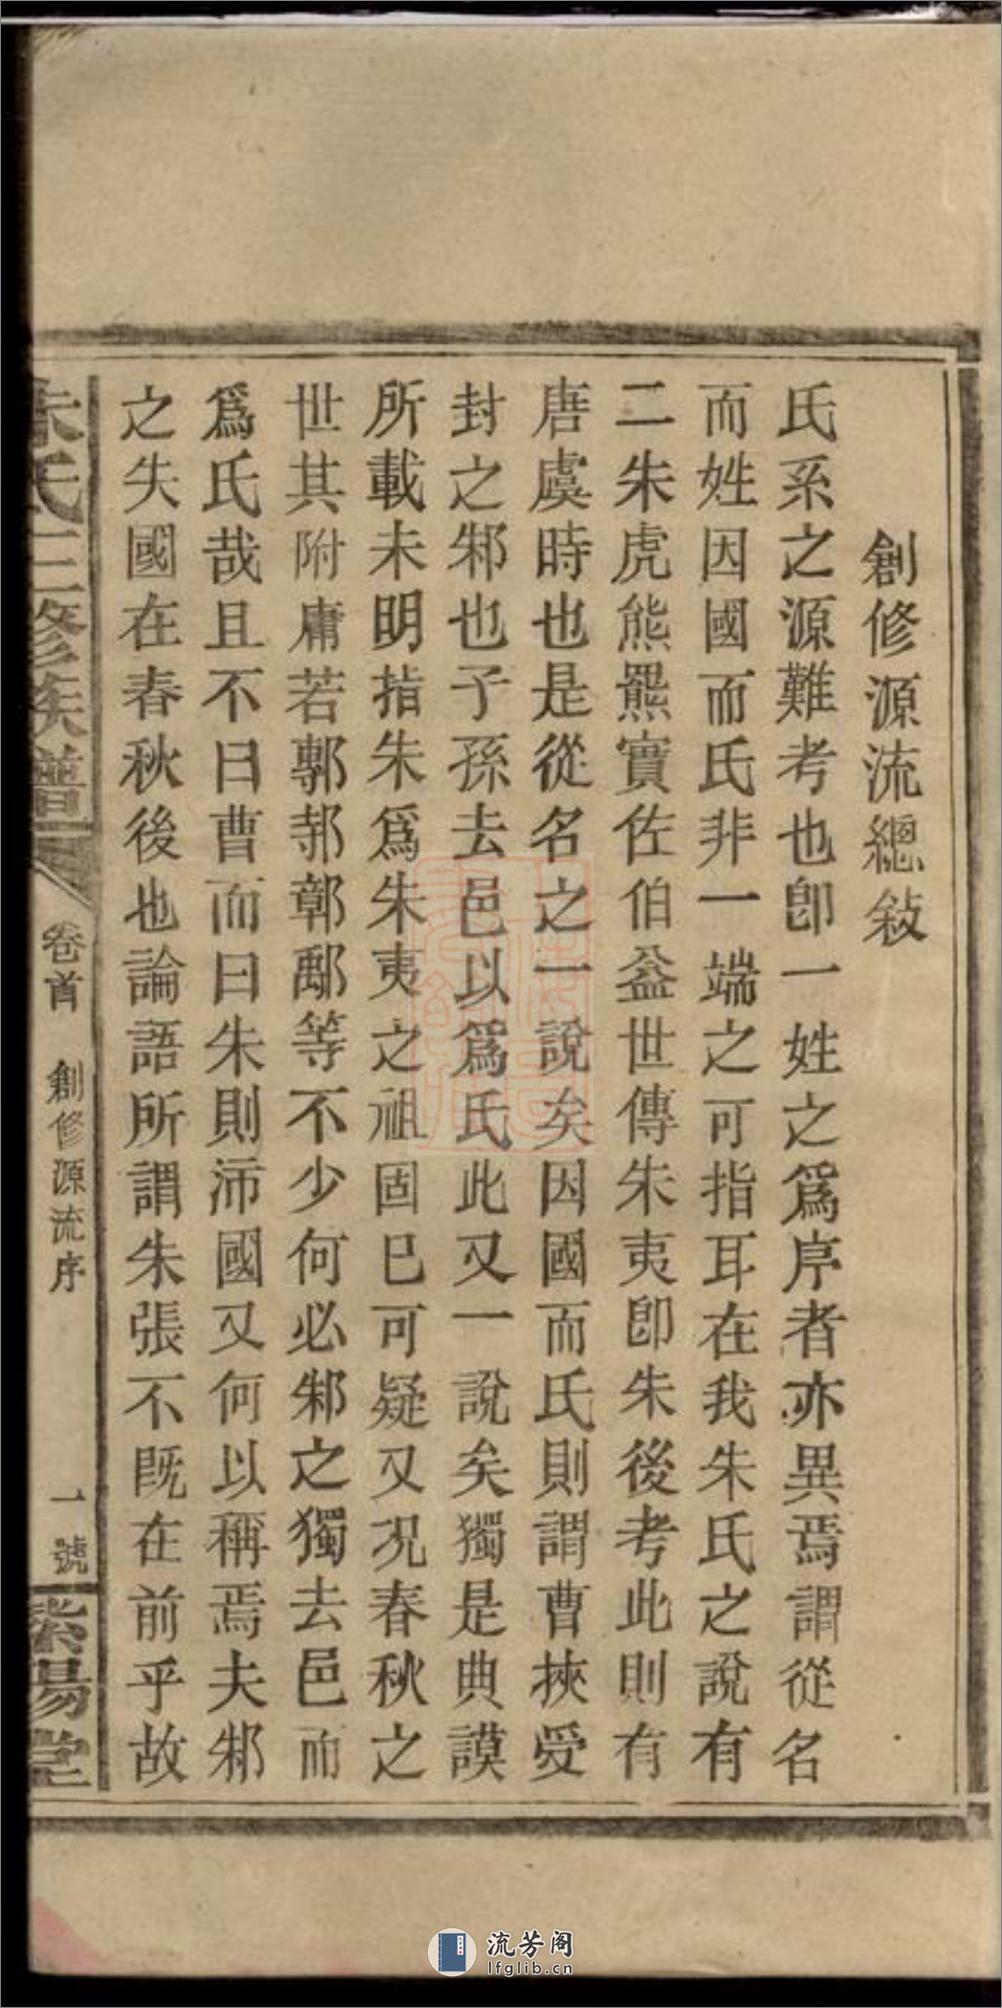 創修源流總敍
氏系之源難考也卽一姓之爲序者亦異焉謂從名
而姓因國而氏非一端之可指耳在我朱氏之說有
二朱虎熊羆實佐伯益世傳朱夷卽朱後考此則有
唐虞時也是從名之一說矣因國而氏則謂曹挾受
封之邾也子孫去邑以爲氏此又一說矣獨是典謨
所載未明指朱爲朱夷之祖固已可疑又况春秋之
世其附庸若鄟邿鄣鄅等不少何必邾之獨去邑而
爲氏哉且不曰曹而曰朱則沛國又何以稱焉夫邾
之失國在春秋後也論語所謂朱張不旣在前乎故
朱氏三修族譜
卷首
創修源流序
一號
紫陽堂
流芳阁
lfglib.cn